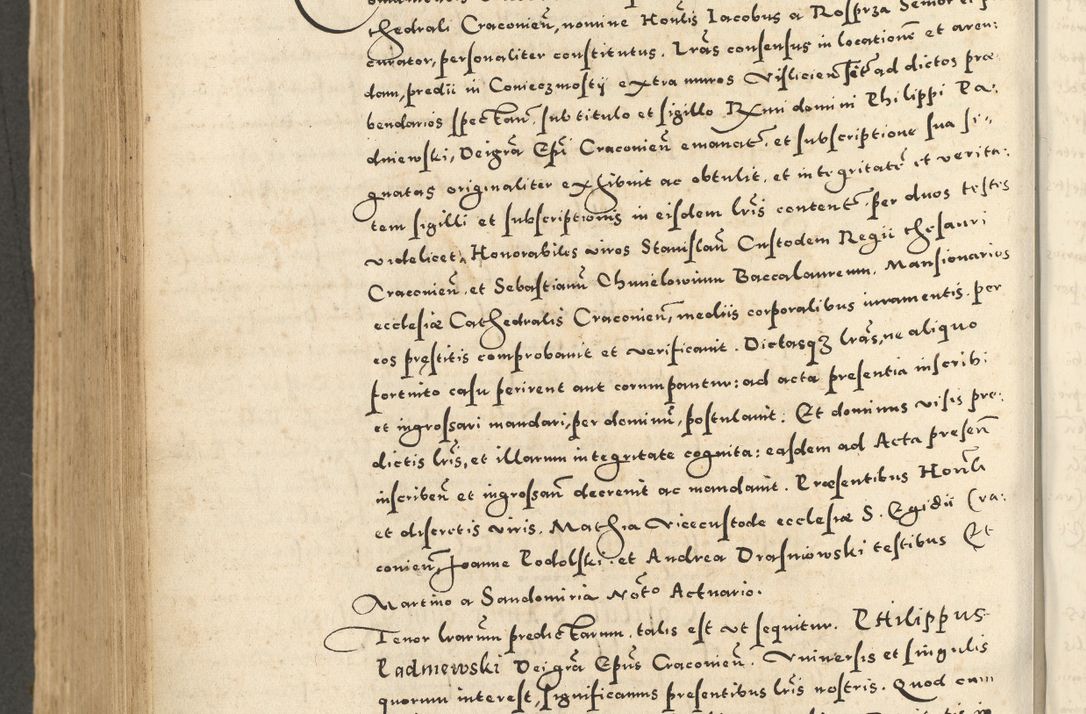 thedrali Craconien̄, nomine Honlis Iacobus a Rosprza Senior et p
curator, personaliter constitutus. Lrãs consensus in locationē et aren:
dam, predii in Conieczmosty extra muros Vislicien̄ sitū ad dictos præ
bendarios spectan̄, sub titulo et sigillo Rxmi domini Philippi Pa:
dniewski, Dei grã Epĩ Craconien̄ emanatˉ, et subscriptione sua si:
gnatas originaliter exhibuit ac obtulit, et integritatē et verita:
tem sigilli et subscriptionis in eisdem lrĩs contentˉ, per duos testes
videlicet, Honorabiles viros Stanislau᷃ Custodem Regii thesauri
Craconien̄, et Sebastianū Chmielowium Baccalaureum, Mansionarios
ecclesiæ Cathedralis Craconien̄, mediis corporalibus iuramentis, per
eos pręstitis comprobavit et verificavit. Dictasqȝ lrãs, ne aliquo
fortuito casu perirent aut corrumpantur: ad acta presentia inscribi
et ingrossari mandari, per dominū, postulavit. Et dominus visis præ:
dictis lrĩs, et illarum integritate cognita: easdem ad Acta presen̄
inscriben̄ et ingrossan̄ decrevit ac mandavit. Præsentibus Honrl
et discretis viris, Mathia Vicecustode ecclesiæ S. Egidii Cra:
conien̄, Joanne Podolski, et Andrea Drasniowski testibus Et
Martino a Sandomiria Notō Actuario.
Tenor lrarum̄ predictarum, talis est ut sequitur. PHilippus
Padniewski Dei grã Epũs Craconien̄. Universis et singulis
quorum interest, significamus presentibus lrĩs nostris. Quod cum